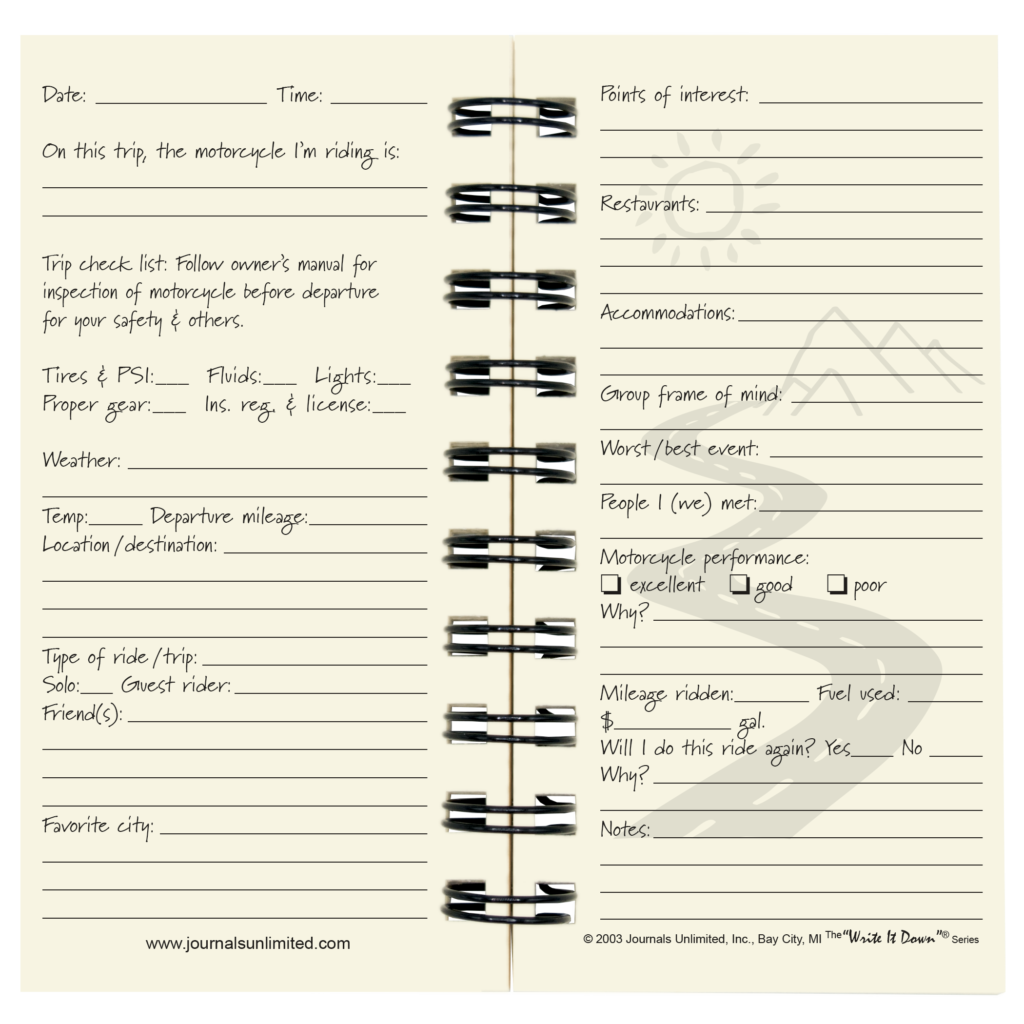 Date: ______ Time: ______
On this trip, the motorcycle I'm riding is:
Trip check list: Follow owner's manual for
inspection of motorcycle before departure
for your safety & others.
Tires & PSI:___ Fluids:___ Lights:___
Proper gear:___ Ins. reg. & license:___
Weather:
Temp:_____ Departure mileage:
Location/destination:
Type of ride/trip:
Solo:___ Guest rider:
Friend(s):
Favorite city:
www.journalsunlimited.com
Points of interest:
Restaurants:
Accommodations:
Group frame of mind:
Worst/best event:
People I (we) met:
Motorcycle performance:
❏ excellent ❏ good ❏ poor
Why?
Mileage ridden:_______ Fuel used: _______
$___________ gal.
Will I do this ride again? Yes____ No _____
Why?
Notes:
© 2003 Journals Unlimited, Inc., Bay City, MI The "Write It Down"® Series